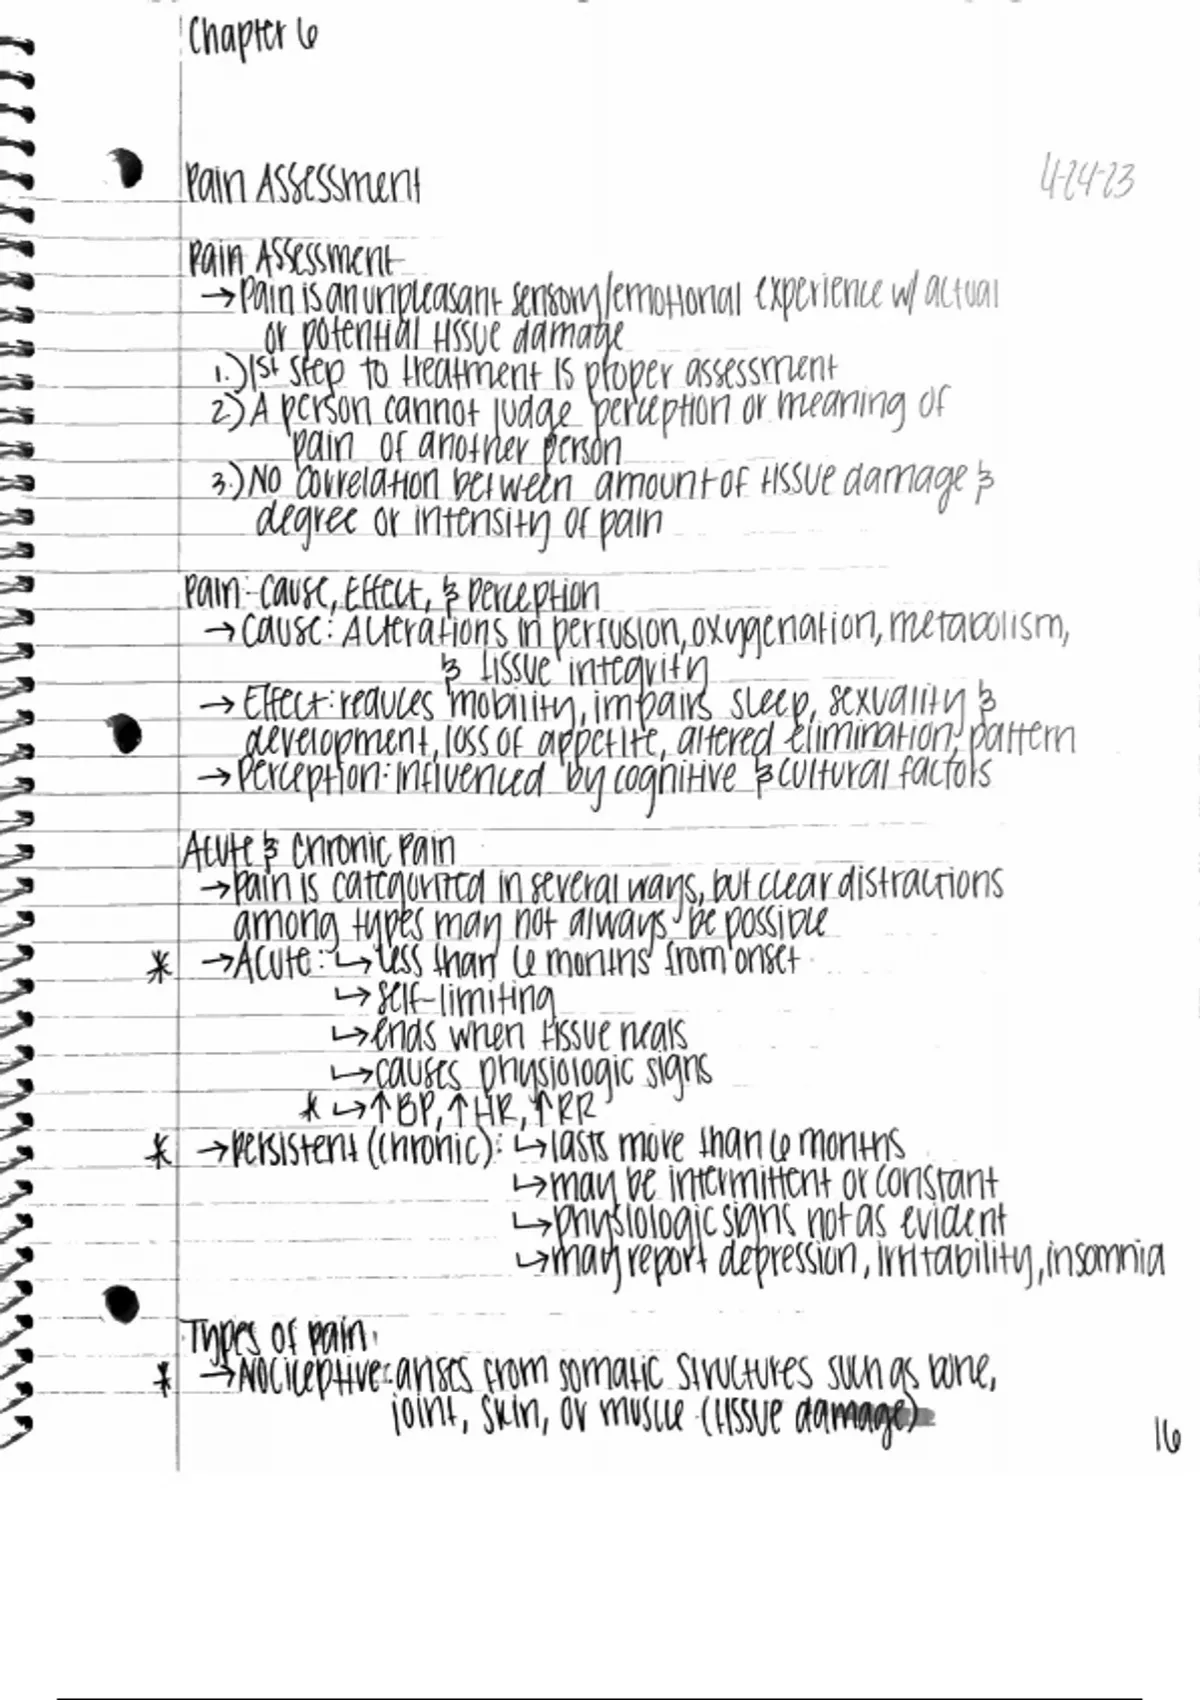 Chapter 6
Pain Assessment
4-24-23
Pain Assessment
→ Pain is an unpleasant sensory/emotional experience w/ actual
or potential tissue damage
1.) 1st step to treatment is proper assessment
2) A person cannot judge perception or meaning of
pain of another person
3.) No correlation between amount of tissue damage &
degree or intensity of pain
Pain-Cause, Effect, & Perception
→ Cause: Alterations in perfusion, oxygenation, metabolism,
& tissue integrity
→ Effect: reduces mobility, impairs sleep, sexuality &
development, loss of appetite, altered elimination, pattern
→ Perception: influenced by cognitive & cultural factors
Acute & Chronic Pain
→ Pain is categorized in several ways, but clear distractions
among types may not always be possible
* → Acute: ↳ less than 6 months from onset
↳ self-limiting
↳ ends when tissue heals
↳ causes physiologic signs
* ↳ ↑BP, ↑HR, ↑RR
* → Persistent (chronic): ↳ lasts more than 6 months
↳ may be intermittent or constant
↳ physiologic signs not as evident
↳ may report depression, irritability, insomnia
Types of pain:
* → Nociceptive: arises from somatic structures such as bone,
joint, skin, or muscle (tissue damage)
16